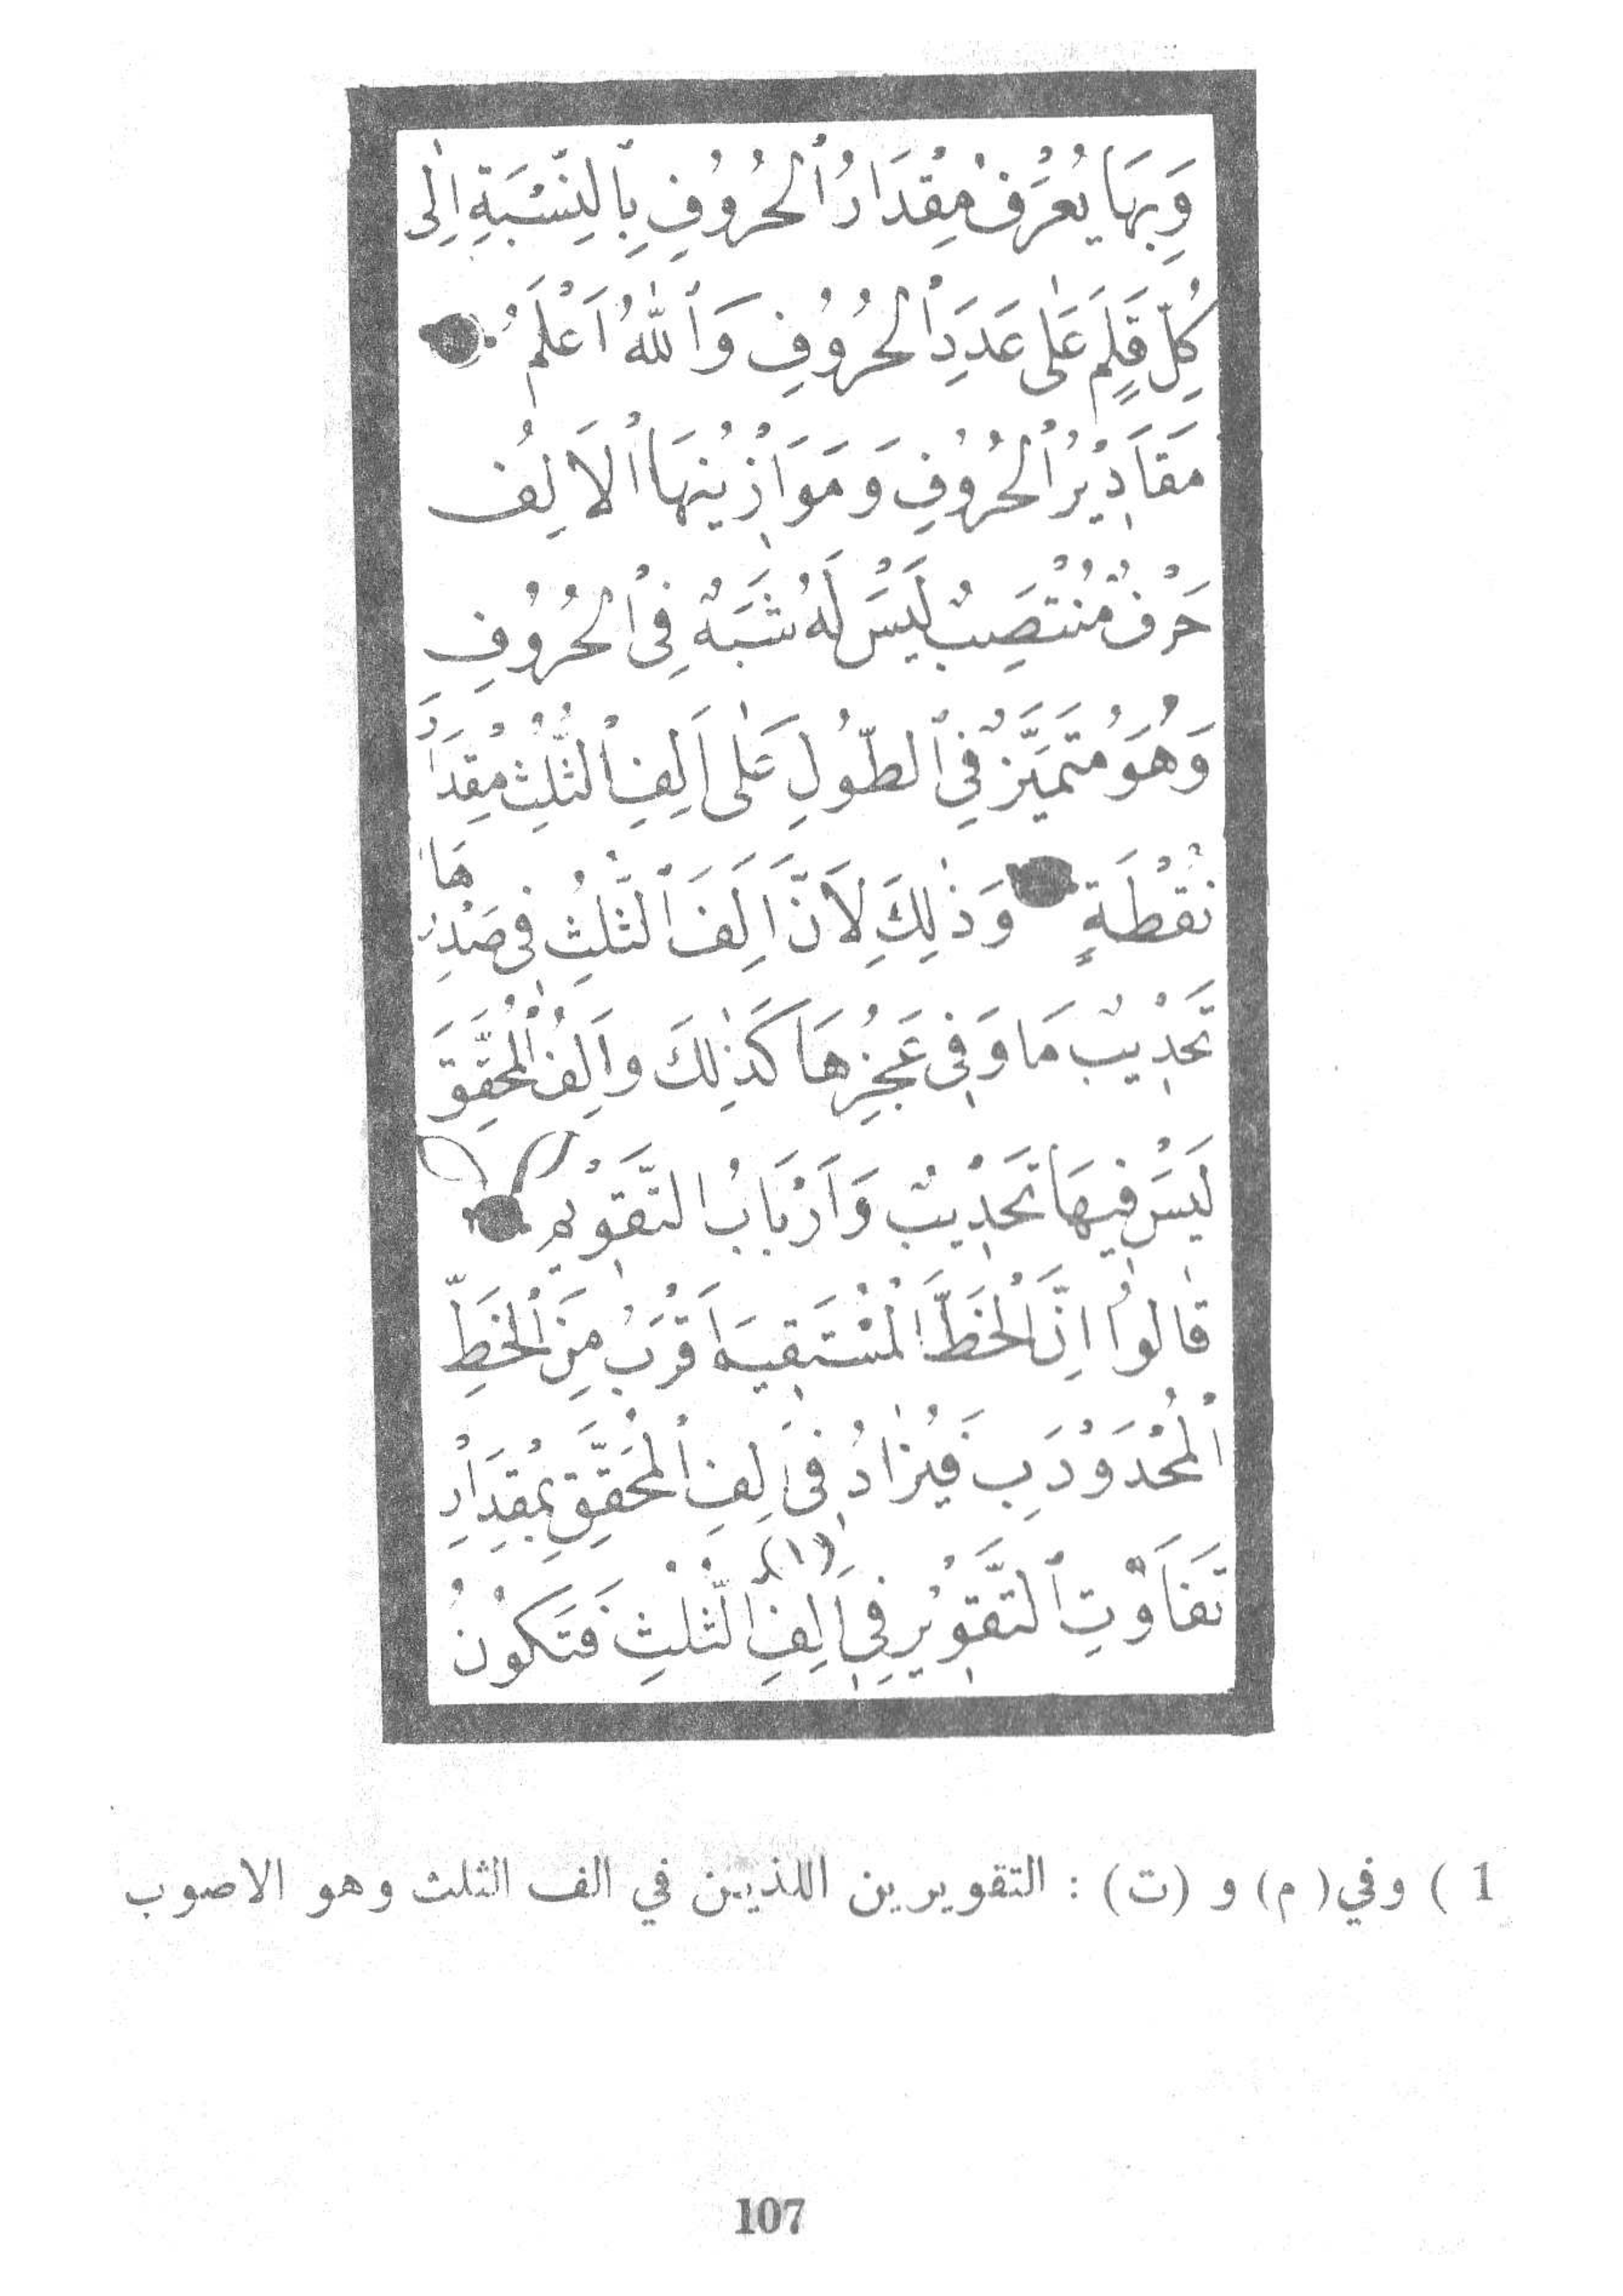 وَبِهَا يُعْرَفُ مِقْدَارُ ٱلحُرُوُفِ بِٱلنِّسْبَةِ اِلٰى
كُلِّ قَلَمٍ عَلٰى عَدَدِ ٱلحُرُوُفِ وَٱللّٰهُ اَعْلَمُ
مَقَادِيْرُ ٱلحُرُوُفِ وَمَوَازِيْنُهَا ٱلاَلِفُ
حَرْفٌ مُنْتَصِبٌ لَيْسَ لَهُ شَبَهٌ فِى ٱلحُرُوُفِ
وَهُوَ مُتَمَيِّزٌ فِي ٱلطُّولِ عَلٰى اَلِفِ ٱلثُّلُثِ مِقْدَارَ
نُقْطَةٍ وَذٰلِكَ لِاَنَّ اَلِفَ ٱلثُّلُثِ فِى صَدْرِهَا
تَحْدِيْبٌ مَا وَفِى عَجُزِهَا كَذٰلِكَ وَاَلِفُ ٱلْمُحَقَّقِ
لَيْسَ فِيهَا تَحْدِيْبٌ وَاَرْبَابُ التَّقْوِيْمِ
قَالُوا اِنَّ ٱلْخَطَّ الْمُسْتَقِيمَ اَقْرَبُ مِنَ ٱلْخَطِّ
ٱلْمُحْدَوْدَبِ فَيُزَادُ فِى اَلِفِ ٱلْمُحَقَّقِ بِمِقْدَارِ
تَفَاوُتِ ٱلتَّقْوِيْرِ فِى اَلِفِ ٱلثُّلْثِ (١) فَتَكُوْنُ
1 ) وفي ( م ) و (ت) : التقويرين اللذين في الف الثلث وهو الاصوب
107